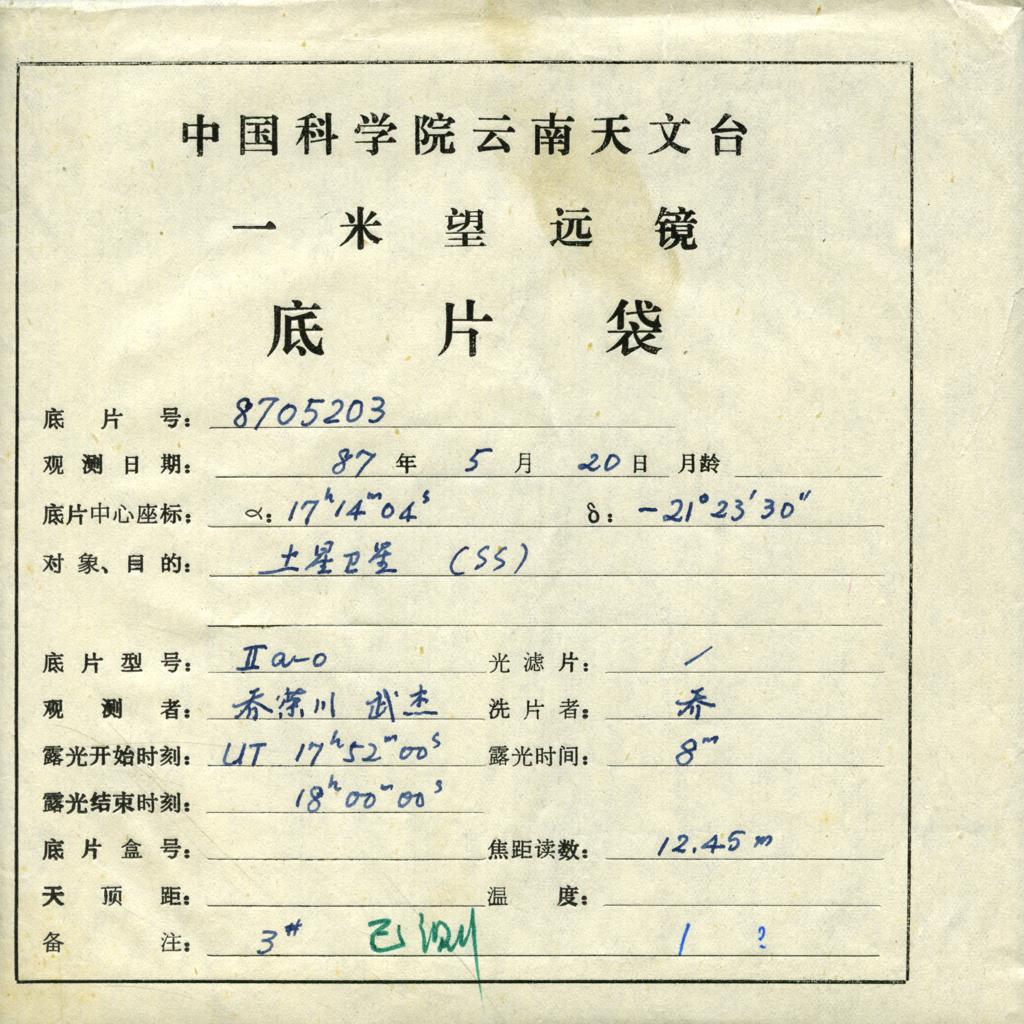 中国科学院云南天文台
一米望远镜
底片袋
底片号： 8705203
观测日期： 87年 5月 20日 月龄
底片中心座标： α：17ʰ14ᵐ04ˢ δ：-21°23′30″
对象、目的： 土星卫星 (SS)
底片型号： Ⅱa-o 光滤片： /
观测者： 乔荣川 武杰 洗片者： 乔
露光开始时刻： UT 17ʰ52ᵐ00ˢ 露光时间： 8ᵐ
露光结束时刻： 18ʰ00ᵐ00ˢ
底片盒号： 焦距读数： 12.45 m
天顶距： 温度：
备注： 3# 已测 1 ?